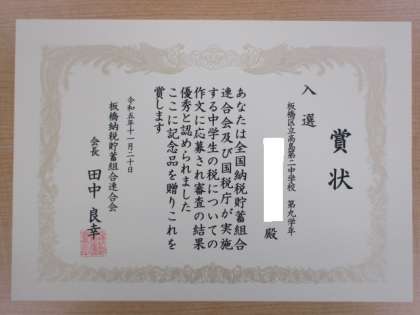 賞状
入選
板橋区立高島第二中学校 第九学年
殿
あなたは全国納税貯蓄組合
連合会及び国税庁が実施
する中学生の税についての
作文に応募され審査の結果
優秀と認められました
ここに記念品を贈りこれを
賞します
令和五年十一月二十日
板橋納税貯蓄組合連合会
会長 田中良幸